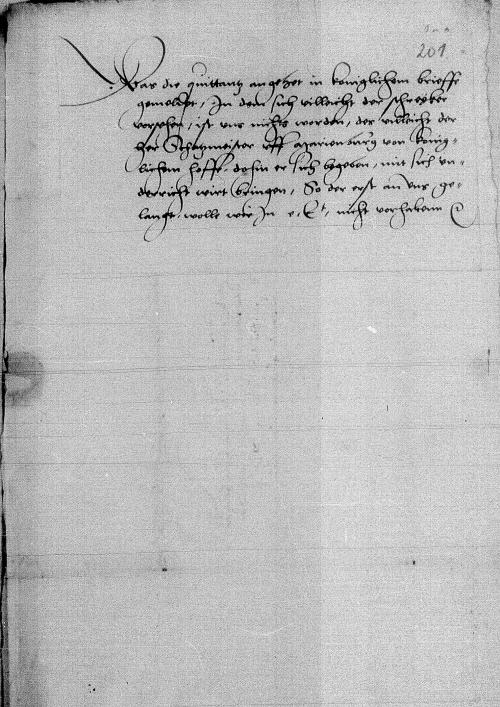 201
Was die quittantz angehet in koniglichem brieffe
gemeldet, In dem sich villeicht der schreyber
vorsehen, ist uns nichts worden, der villeicht der
Her Schatzmeister uff Marienburg von konig-
lichem hoffe, dohin er sich begeben, mit sich un-
derricht wirt bringen, So der erst an uns ge-
langt, wolle wir In e. nicht vorhalten